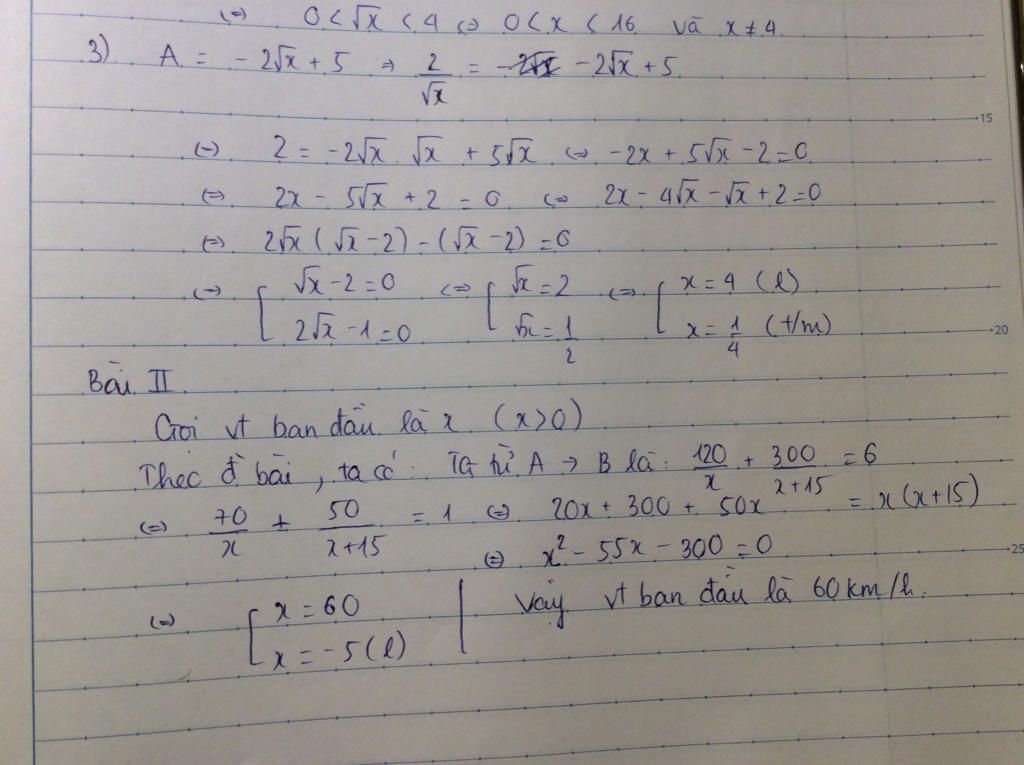 (=) 0 < √x < 4 (=) 0 < x < 16 và x ≠ 4
3) A = - 2√x + 5 ⇒ 2/√x = - 2√x + 5
15
(=) 2 = -2√x . √x + 5√x (=) -2x + 5√x - 2 = 0
(=) 2x - 5√x + 2 = 0 (=) 2x - 4√x - √x + 2 = 0
(=) 2√x (√x - 2) - (√x - 2) = 0
(=) [ √x - 2 = 0 (=) [ √x = 2 (=) [ x = 4 (l)
2√x - 1 = 0 √x = 1/2 x = 1/4 (t/m)
20
Bài II
Gọi vt ban đầu là x (x>0)
Theo đề bài, ta có: TG từ A → B là: 120/x + 300/x+15 = 6
(=) 70/x + 50/x+15 = 1 (=) 20x + 300 + 50x = x(x+15)
(=) x² - 55x - 300 = 0
25
(=) [ x = 60
x = -5 (l)
Vậy vt ban đầu là 60 km/h.